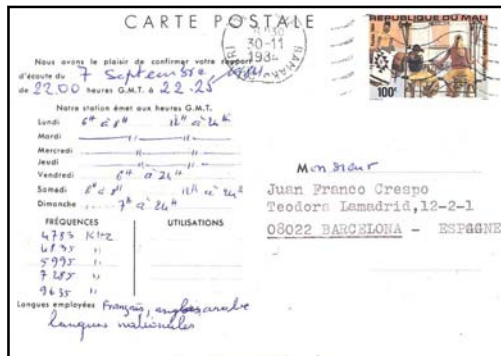 CARTE POSTALE
REPUBLIQUE DU MALI
100F
30-11
1984
BAMAKO
Nous avons le plaisir de confirmer votre rapport
d'écoute du 7 Septembre 1984
de 22.00 heures G.M.T. à 22.25
Notre station émet aux heures G.M.T.
Lundi 6H à 8H 12H à 24H
Mardi
Mercredi
Jeudi
Vendredi 6H à 24H
Samedi 6H à 8H 12H à 24H
Dimanche 7H à 24H
FRÉQUENCES UTILISATIONS
4783 KHz
4835 "
5995 "
7285 "
9635 "
Langues employées Français, anglais, arabe
langues nationales
Monsieur
Juan Franco Crespo
Teodora Lamadrid,12-2-1
08022 BARCELONA - ESPAGNE